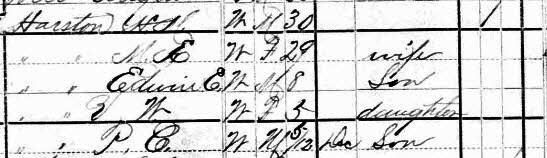 Harston H M W M 30 1
" " M E W F 29 wife
" " Edwin E W M 8 Son
" " W W F 5 daughter
" " P. C. W M 5/12 Dec Son